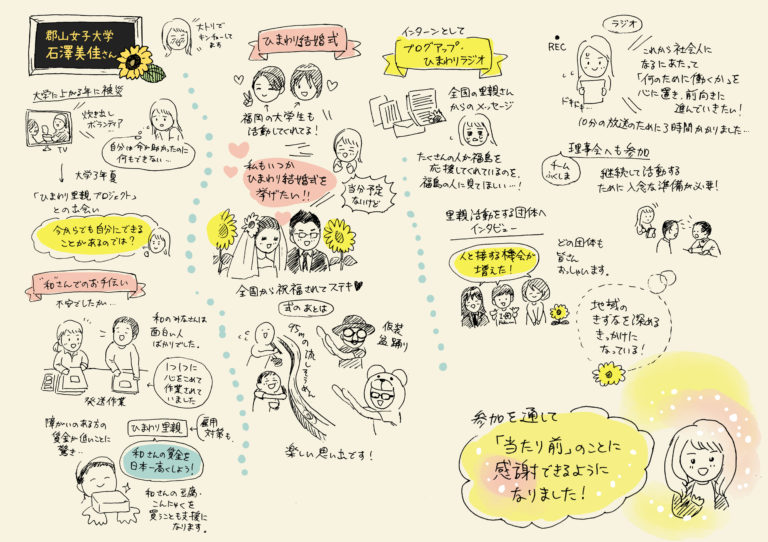 郡山女子大学
石澤美佳さん
大トリで
キンチョーして
ます
大学に上がる3年に被災
炊き出し
ボランティア
TV
自分は今が助かったのに
何もできない…
大学3年夏
「ひまわり里親プロジェクト」
との出会い
今からでも自分にできる
ことがあるのでは?
"和"さんでのお手伝い
不安でしたが…
和のみなさんは
面白い人
ばかりでした。
1つ1つに
心をこめて
作業されて
いました
発送作業
障がいのある方の
賃金が低いことに
驚き…
ひまわり里親
雇用
対策も、
和さんの賃金を
日本一高くしよう!
和さんの豆腐・
こんにゃくを
買うことも支援に
なります。
ひまわり結婚式
福岡の大学生も
活動してくれてる!
私もいつか
ひまわり結婚式を
挙げたい!!
当分予定
ないけど
全国から祝福されてステキ♥
式のあとは
95mの流しそうめん
仮装
盆踊り
楽しい思い出です!
インターンとして
ブログアップ・
ひまわりラジオ
全国の里親さん
からのメッセージ
たくさんの人が福島を
応援してくれているのを、
福島の人に見てほしい…!
里親活動をする団体へ
インタビュー
人と接する機会が
増えた!
どの団体も
皆さん
おっしゃいます。
地域の
きずなを深める
きっかけに
なっている!
ラジオ
REC
ドキドキ…
これから社会人に
なるにあたって
「何のために働くか」を
心に置き、前向きに
進んでいきたい!
10分の放送のために3時間かかりました…
理事会へも参加
チーム
ふくしま
継続して活動する
ために入念な準備が必要!
参加を通して
「当たり前」のことに
感謝できるように
なりました!